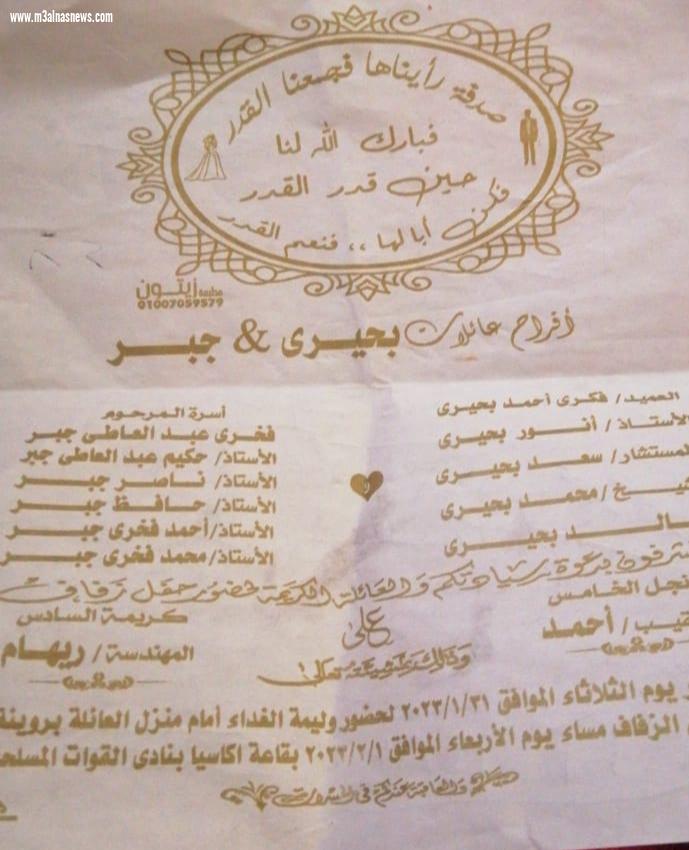 www.m3alnasnews.com
صدفة رأيناها فجمعنا القدر
فبارك الله لنا
حين قدر القدر
فكن أبا لها ،، فنعم القدر
مطبعة زيتون
01007059579
أفراح عائلات بحيرى & جبر
العميد/ فكرى أحمد بحيرى
الأستاذ/ أنور بحيرى
لمستشار/ سعد بحيرى
شيخ/ محمد بحيرى
الد بحيرى
أسرة المرحوم
فخرى عبد العاطى جبر
الأستاذ/ حكيم عبد العاطى جبر
الأستاذ/ ناصر جبر
الأستاذ/ حافظ جبر
الأستاذ/ أحمد فخرى جبر
الأستاذ/ محمد فخرى جبر
يتشرفون بدعوة سيادتكم والعائلة الكريمة لحضور حفل زفاف
نجل الخامس
قيب/ أحمد
على
كريمة السادس
المهندسة/ ريهام
وذلك بمشيئة الله تعالى
يوم الثلاثاء الموافق ٢٠٢٣/١/٣١ لحضور وليمة الغداء أمام منزل العائلة بروينة
الزفاف مساء يوم الأربعاء الموافق ٢٠٢٣/٢/١ بقاعة اكاسيا بنادى القوات المسلحة
والعاقبة عندكم فى المسرات